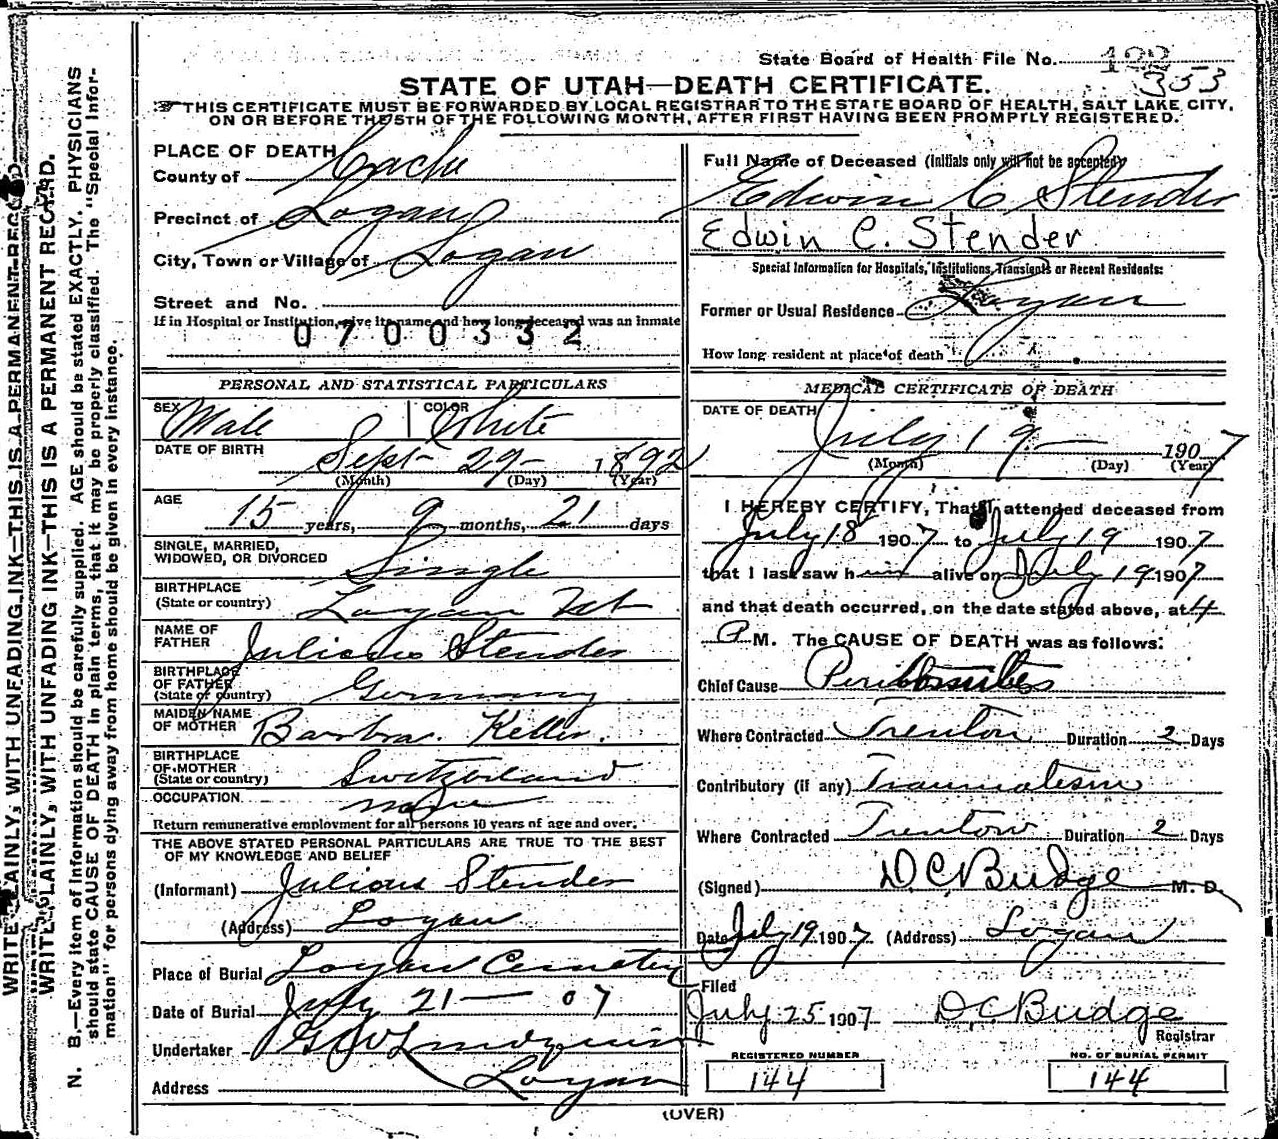 State Board of Health File No. 122
353
STATE OF UTAH—DEATH CERTIFICATE.
THIS CERTIFICATE MUST BE FORWARDED BY LOCAL REGISTRAR TO THE STATE BOARD OF HEALTH, SALT LAKE CITY,
ON OR BEFORE THE 5TH OF THE FOLLOWING MONTH, AFTER FIRST HAVING BEEN PROMPTLY REGISTERED.
PLACE OF DEATH
County of Cache
Precinct of Logan
City, Town or Village of Logan
Street and No.
If in Hospital or Institution, give its name and how long deceased was an inmate
0700332
Full Name of Deceased (Initials only will not be accepted)
Edwin C Stender
Edwin C. Stender
Special Information for Hospitals, Institutions, Transients or Recent Residents:
Former or Usual Residence Logan
How long resident at place of death
PERSONAL AND STATISTICAL PARTICULARS
SEX Male COLOR White
DATE OF BIRTH Sept 29 1892
(Month) (Day) (Year)
AGE 15 years, 9 months, 21 days
SINGLE, MARRIED,
WIDOWED, OR DIVORCED Single
BIRTHPLACE
(State or country) Logan Ut
NAME OF
FATHER Julious Stender
BIRTHPLACE
OF FATHER
(State or country) Germany
MAIDEN NAME
OF MOTHER Barbra Keller.
BIRTHPLACE
OF MOTHER
(State or country) Switzerland
OCCUPATION none
Return remunerative employment for all persons 10 years of age and over.
THE ABOVE STATED PERSONAL PARTICULARS ARE TRUE TO THE BEST
OF MY KNOWLEDGE AND BELIEF
(Informant) Julious Stender
(Address) Logan
Place of Burial Logan Cemetery
Date of Burial July 21 — 07
Undertaker
Address Logan
MEDICAL CERTIFICATE OF DEATH
DATE OF DEATH July 19 — 1907
(Month) (Day) (Year)
I HEREBY CERTIFY, That I attended deceased from
July 18 1907 to July 19 1907
that I last saw him alive on July 19 1907
and that death occurred, on the date stated above, at 4
P M. The CAUSE OF DEATH was as follows:
Chief Cause Peritonitis
Where Contracted Trenton Duration 2 Days
Contributory (if any) Traumatism
Where Contracted Trenton Duration 2 Days
(Signed) D.C. Budge M. D.
Date July 19 1907 (Address) Logan
Filed
July 25 1907 D C Budge
Registrar
REGISTERED NUMBER
144
NO. OF BURIAL PERMIT
144
(OVER)
WRITE PLAINLY, WITH UNFADING INK—THIS IS A PERMANENT RECORD.
N. B.—Every item of information should be carefully supplied. AGE should be stated EXACTLY. PHYSICIANS
should state CAUSE OF DEATH in plain terms, that it may be properly classified. The "Special Infor-
mation" for persons dying away from home should be given in every instance.